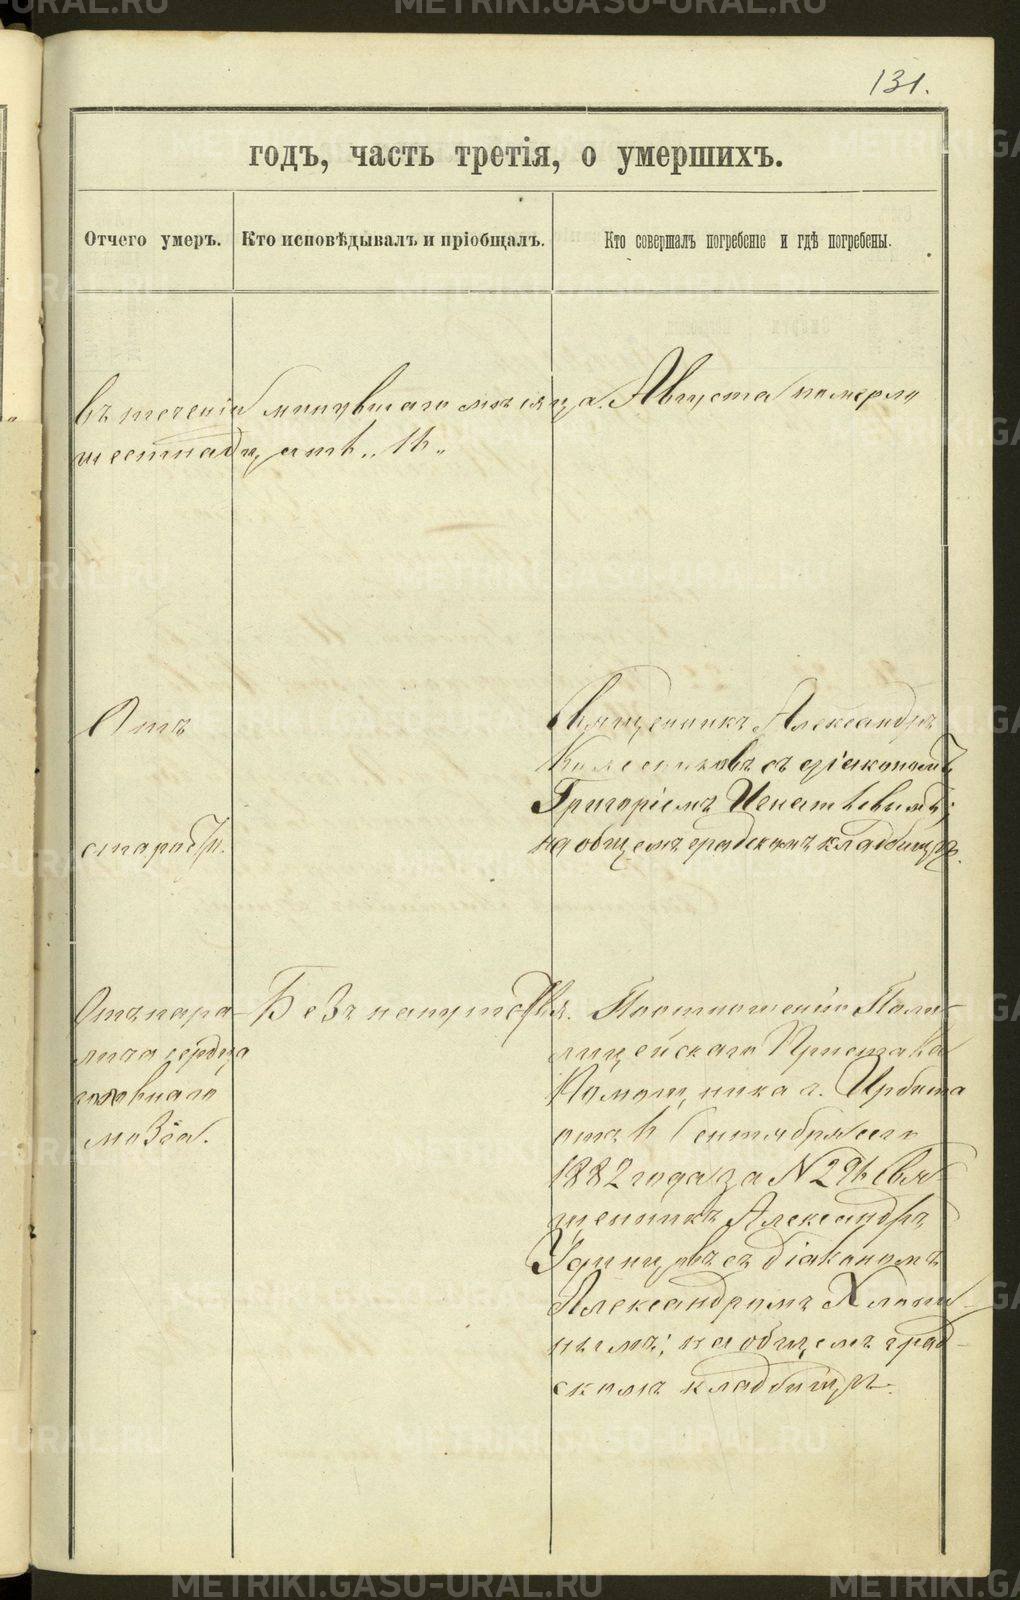 131.
годъ, часть третія, о умершихъ.
Отчего умеръ. Кто исповѣдывалъ и пріобщалъ. Кто совершалъ погребеніе и гдѣ погребены.
въ теченіи минувшаго мѣсяца Августа померло
шестнадцать „16„
Отъ
старости.
Священникъ Александръ
Колесниковъ съ діакономъ
Григоріемъ Игнатьевымъ;
на общемъ градскомъ кладбищѣ.
Отъ пара-
лича сердца
головнаго
мозга.
Безъ напутствія.
По отношенію Поли-
цейскаго Пристава
Помощника г. Ирбита
отъ 6 Сентября сего
1882 года за № 296 Свя-
щенникъ Александръ
Удинцовъ съ діакономъ
Александромъ Хлопи-
нымъ; на общемъ град-
скомъ кладбищѣ.
METRIKI.GASO-URAL.RU